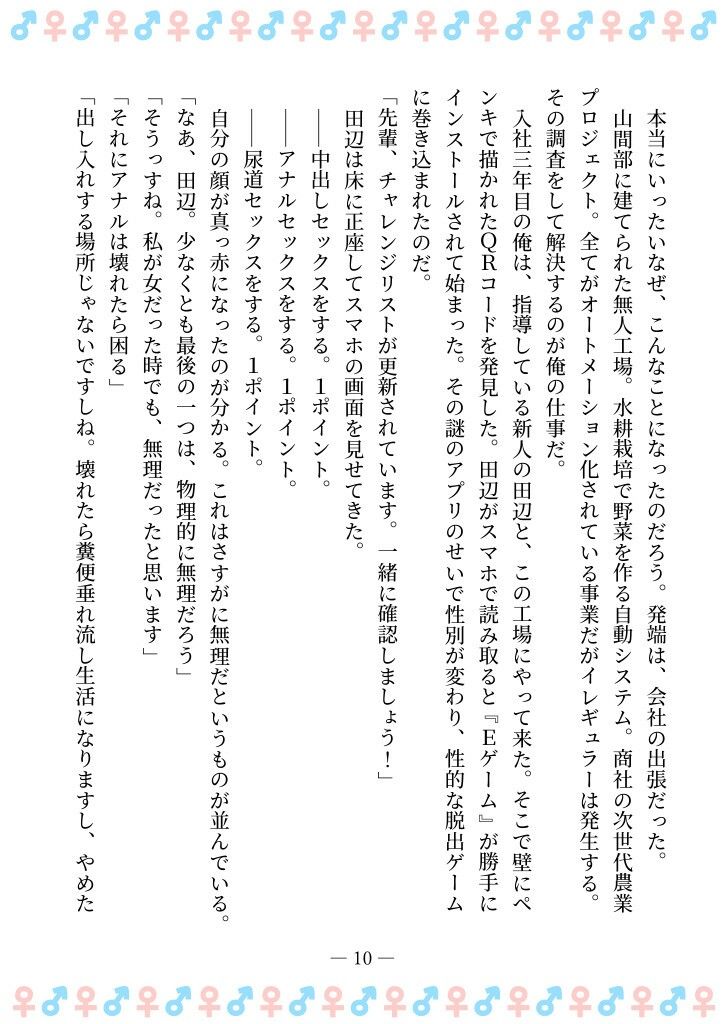 本当にいったいなぜ、こんなことになったのだろう。発端は、会社の出張だった。
山間部に建てられた無人工場。水耕栽培で野菜を作る自動システム。商社の次世代農業
プロジェクト。全てがオートメーション化されている事業だがイレギュラーは発生する。
その調査をして解決するのが俺の仕事だ。
入社三年目の俺は、指導している新人の田辺と、この工場にやって来た。そこで壁にペ
ンキで描かれたQRコードを発見した。田辺がスマホで読み取ると『Eゲーム』が勝手に
インストールされて始まった。その謎のアプリのせいで性別が変わり、性的な脱出ゲーム
に巻き込まれたのだ。
「先輩、チャレンジリストが更新されています。一緒に確認しましょう!」
田辺は床に正座してスマホの画面を見せてきた。
――中出しセックスをする。1ポイント。
――アナルセックスをする。1ポイント。
――尿道セックスをする。1ポイント。
自分の顔が真っ赤になったのが分かる。これはさすがに無理だというものが並んでいる。
「なあ、田辺。少なくとも最後の一つは、物理的に無理だろう」
「そうっすね。私が女だった時でも、無理だったと思います」
「それにアナルは壊れたら困る」
「出し入れする場所じゃないですしね。壊れたら糞便垂れ流し生活になりますし、やめた
— 10 —